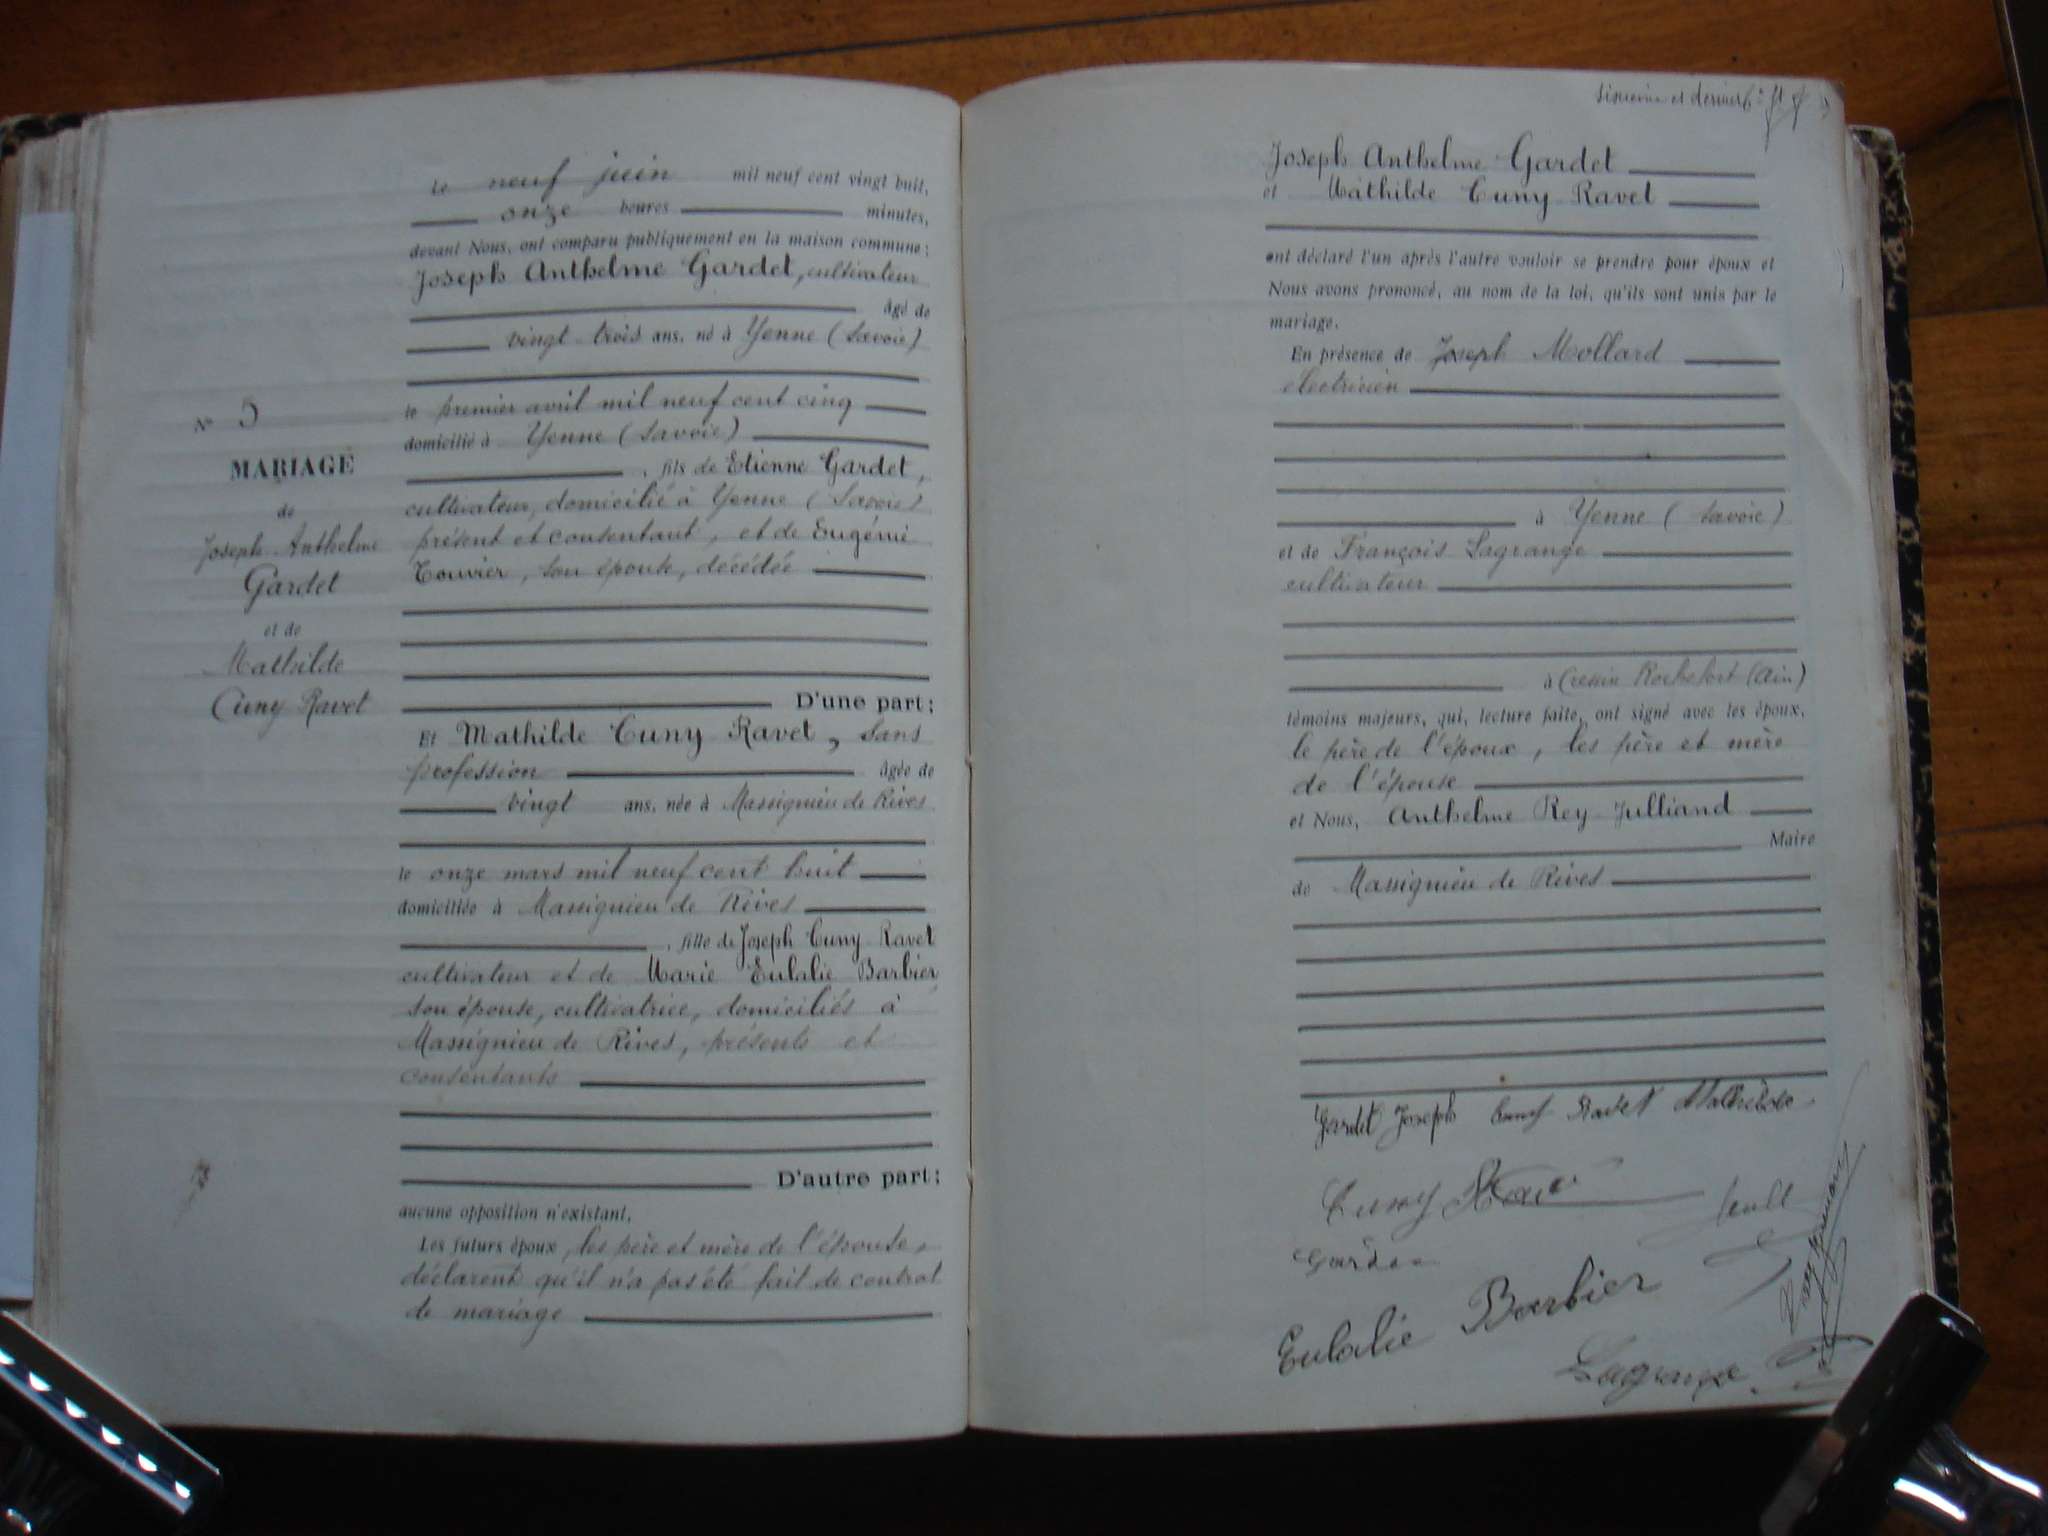 N° 5
MARIAGE
de
Joseph Anthelme
Gardet
et de
Mathilde
Cuny Ravet
Le neuf juin mil neuf cent vingt huit,
onze heures minutes,
devant Nous, ont comparu publiquement en la maison commune:
Joseph Anthelme Gardet, cultivateur
âgé de
vingt trois ans, né à Yenne (Savoie)
le premier avril mil neuf cent cinq
domicilié à Yenne (Savoie)
, fils de Etienne Gardet,
cultivateur, domicilié à Yenne (Savoie)
présent et consentant, et de Eugénie
Touvier, son épouse, décédée
D'une part;
Et Mathilde Cuny Ravet, sans
profession âgée de
vingt ans, née à Massignieu de Rives
le onze mars mil neuf cent huit
domiciliée à Massignieu de Rives
, fille de Joseph Cuny Ravet
cultivateur et de Marie Eulalie Barbier,
son épouse, cultivatrice, domiciliés à
Massignieu de Rives, présents et
consentants
D'autre part;
aucune opposition n'existant,
Les futurs époux, les père et mère de l'épouse,
déclarent qu'il n'a pas été fait de contrat
de mariage
sixième et dernier
Joseph Anthelme Gardet
et Mathilde Cuny Ravet
ont déclaré l'un après l'autre vouloir se prendre pour époux et
Nous avons prononcé, au nom de la loi, qu'ils sont unis par le
mariage.
En présence de Joseph Mollard
électricien
à Yenne (Savoie)
et de François Lagrange
cultivateur
à Cressin Rochefort (Ain)
témoins majeurs, qui, lecture faite, ont signé avec les époux,
le père de l'époux, les père et mère
de l'épouse
et Nous, Anthelme Rey Julliand
Maire
de Massignieu de Rives
Gardet Joseph Cuny Ravet Mathilde
Cuny
Eulalie Barbier
Lagrange